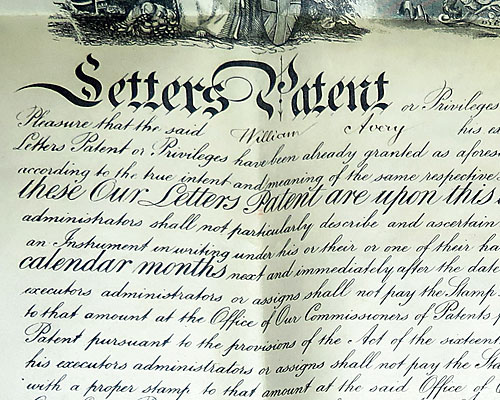 Letters Patent or Privileges
Pleasure that the said William Avery his ex
Letters Patent or Privileges have been already granted as afores
according to the true intent and meaning of the same respective
these Our Letters Patent are upon this
administrators shall not particularly describe and ascertain
an Instrument in writing under his or their or one of their ha
calendar months next and immediately after the dat
executors administrators or assigns shall not pay the Stamp
to that amount at the Office of Our Commissioners of Patents f
Patent pursuant to the provisions of the Act of the sixteent
his executors administrators or assigns shall not pay the Sta
with a proper stamp to that amount at the said Office of